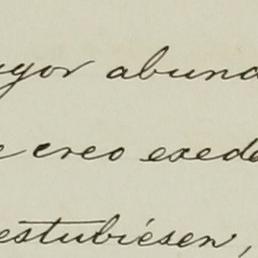 ayor abund
e creo exede
estubiésen,